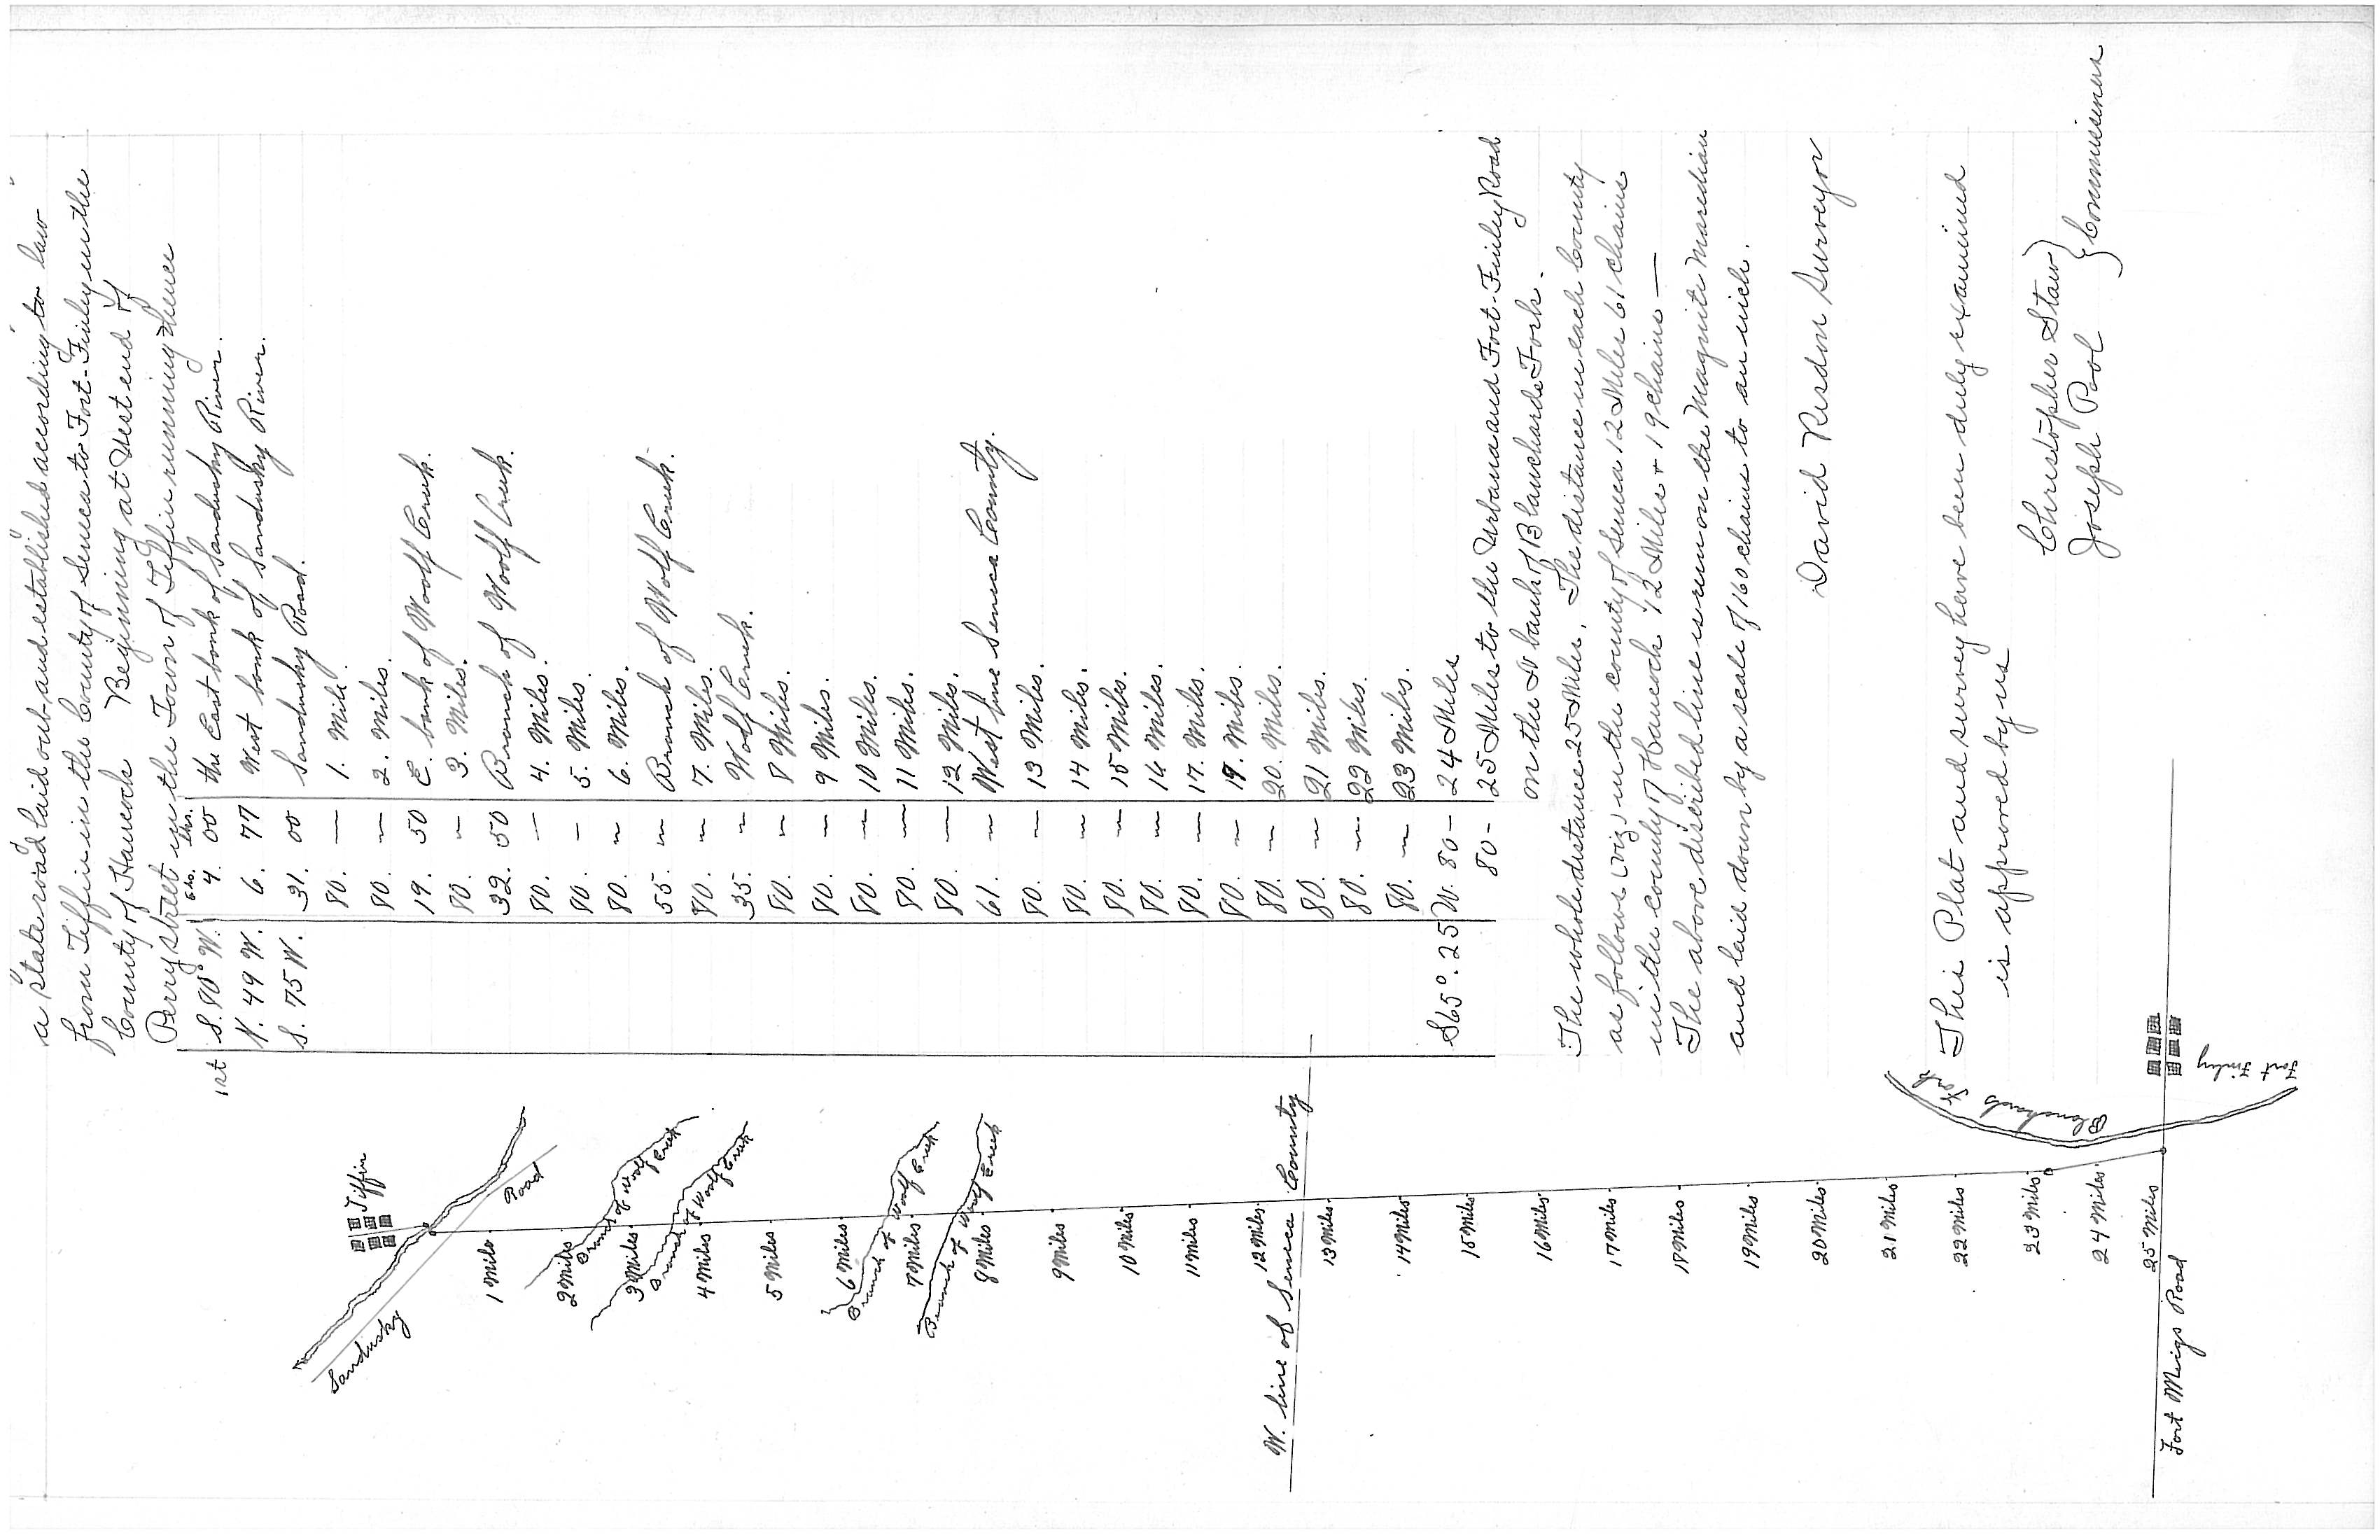 a State road laid out and established according to law
from Tiffin in the County of Seneca to Fort-Finley in the
County of Hancock Beginning at West end of
Perry street in the Town of Tiffin running thence
chs. lks.
1st S. 80° W. 4. 00 the East bank of Sandusky River.
N. 49 W. 6. 77 West bank of Sandusky River.
S. 75 W. 31. 00 Sandusky Road.
80. — 1. Mile.
80. — 2. Miles.
19. 50 E. bank of Woolf Creek.
80. — 3. Miles.
32. 50 Branch of Woolf Creek.
80. — 4. Miles.
80. — 5. Miles.
80. — 6. Miles.
55. — Branch of Wolf Creek.
80. — 7. Miles.
35. — Wolf Creek.
80. — 8 Miles.
80. — 9 Miles.
80. — 10 Miles.
80. — 11 Miles.
80. — 12 Miles.
61. — West line Seneca County.
80. — 13 Miles.
80. — 14 Miles.
80. — 15 Miles.
80. — 16 Miles.
80. — 17. Miles.
80. — 19. Miles.
80. — 20. Miles.
80. — 21 Miles.
80. — 22 Miles.
80. — 23 Miles.
S65°. 25 W. 80 — 24 Miles
80 - 25 Miles to the Urbana and Fort-Finley Road
on the bank of Blanchards Fork.
The whole distance 25 Miles. The distance in each County
as follows viz, in the county of Seneca 12 Miles 61 chains
in the county of Hancock 12 Miles + 19 chains —
The above discribed line is run on the Magnite Maredian
and laid down by a scale of 160 chains to an inch.
David Risdon Surveyor
This Plat and survey have been duly examined
is approved by us
Christopher Staw
Joseph Pool
} Commissners
Tiffin
Sandusky Road
1 Mile
2 Miles
Branch of Woolf Creek
3 Miles
Branch of Woolf Creek
4 Miles
5 Miles
6 Miles
Branch of Woolf Creek
7 Miles
Branch of Woolf Creek
8 Miles
9 Miles
10 Miles
11 Miles
12 Miles
W. line of Seneca County
13 Miles
14 Miles
15 Miles
16 Miles
17 Miles
18 Miles
19 Miles
20 Miles
21 Miles
22 Miles
23 Miles
24 Miles
25 Miles
Blanchards Fork
Fort Finley
Fort Meigs Road